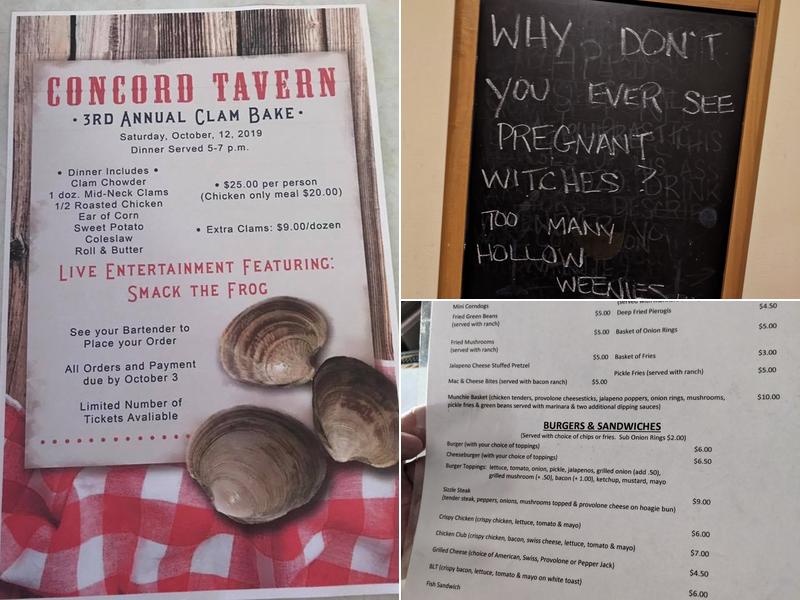 CONCORD TAVERN
• 3RD ANNUAL CLAM BAKE •
Saturday, October, 12, 2019
Dinner Served 5-7 p.m.
• Dinner Includes •
Clam Chowder
1 doz. Mid-Neck Clams
1/2 Roasted Chicken
Ear of Corn
Sweet Potato
Coleslaw
Roll & Butter
• $25.00 per person
(Chicken only meal $20.00)
• Extra Clams: $9.00/dozen
LIVE ENTERTAINMENT FEATURING:
SMACK THE FROG
See your Bartender to
Place your Order
All Orders and Payment
due by October 3
Limited Number of
Tickets Avaliable
WHY DON'T
YOU EVER SEE
PREGNANT
WITCHES?
TOO MANY
HOLLOW
WEENIES
Mini Corndogs
$5.00 Deep Fried Pierogis $4.50
Fried Green Beans
(served with ranch)
$5.00 Basket of Onion Rings $5.00
Fried Mushrooms
(served with ranch)
$5.00 Basket of Fries $3.00
Jalapeno Cheese Stuffed Pretzel
Pickle Fries (served with ranch) $5.00
Mac & Cheese Bites (served with bacon ranch) $5.00
Munchie Basket (chicken tenders, provolone cheesesticks, jalapeno poppers, onion rings, mushrooms, $10.00
pickle fries & green beans served with marinara & two additional dipping sauces)
BURGERS & SANDWICHES
(Served with choice of chips or fries. Sub Onion Rings $2.00)
Burger (with your choice of toppings) $6.00
Cheeseburger (with your choice of toppings) $6.50
Burger Toppings: lettuce, tomato, onion, pickle, jalapenos, grilled onion (add .50),
grilled mushroom (+ .50), bacon (+ 1.00), ketchup, mustard, mayo
Sizzle Steak $9.00
(tender steak, peppers, onions, mushrooms topped & provolone cheese on hoagie bun)
Crispy Chicken (crispy chicken, lettuce, tomato & mayo) $6.00
Chicken Club (crispy chicken, bacon, swiss cheese, lettuce, tomato & mayo) $7.00
Grilled Cheese (choice of American, Swiss, Provolone or Pepper Jack) $4.50
BLT (crispy bacon, lettuce, tomato & mayo on white toast)
Fish Sandwich $6.00